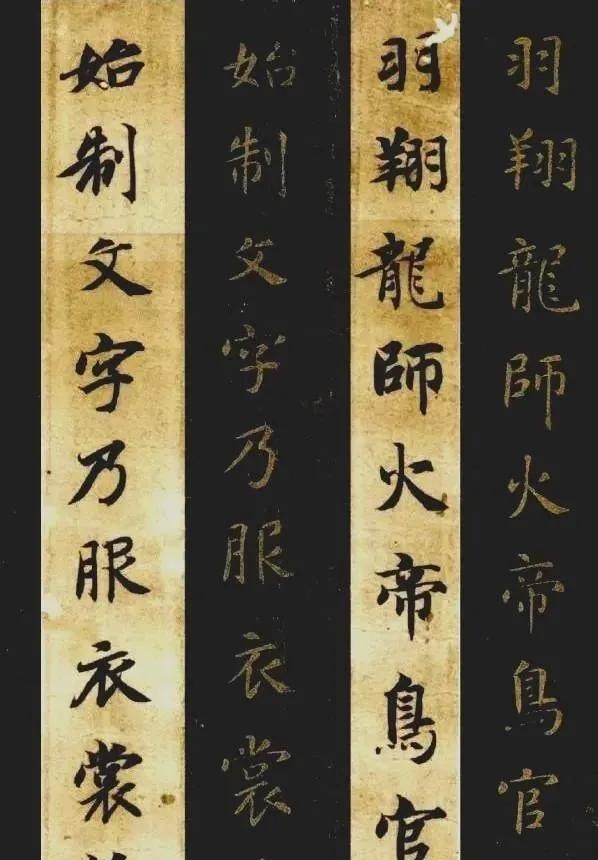 羽翔龍師火帝鳥官
羽翔龍師火帝鳥官
始制文字乃服衣裳
始制文字乃服衣裳